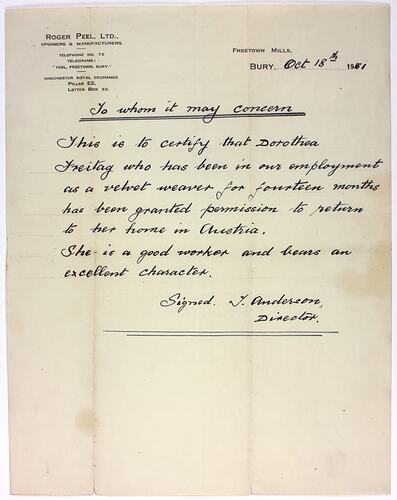 ROGER PEEL, LTD.,
SPINNERS & MANUFACTURERS.
TELEPHONE NO. 75
TELEGRAMS:
"PEEL, FREETOWN, BURY."
MANCHESTER ROYAL EXCHANGE
PILLAR E2.
LETTER BOX 30.
FREETOWN MILLS,
BURY, Oct 18th 1951
To whom it may concern
This is to certify that Dorothea
Freitag who has been in our employment
as a velvet weaver for fourteen months
has been granted permission to return
to her home in Austria.
She is a good worker and bears an
excellent character.
Signed. T. Anderson,
Director.